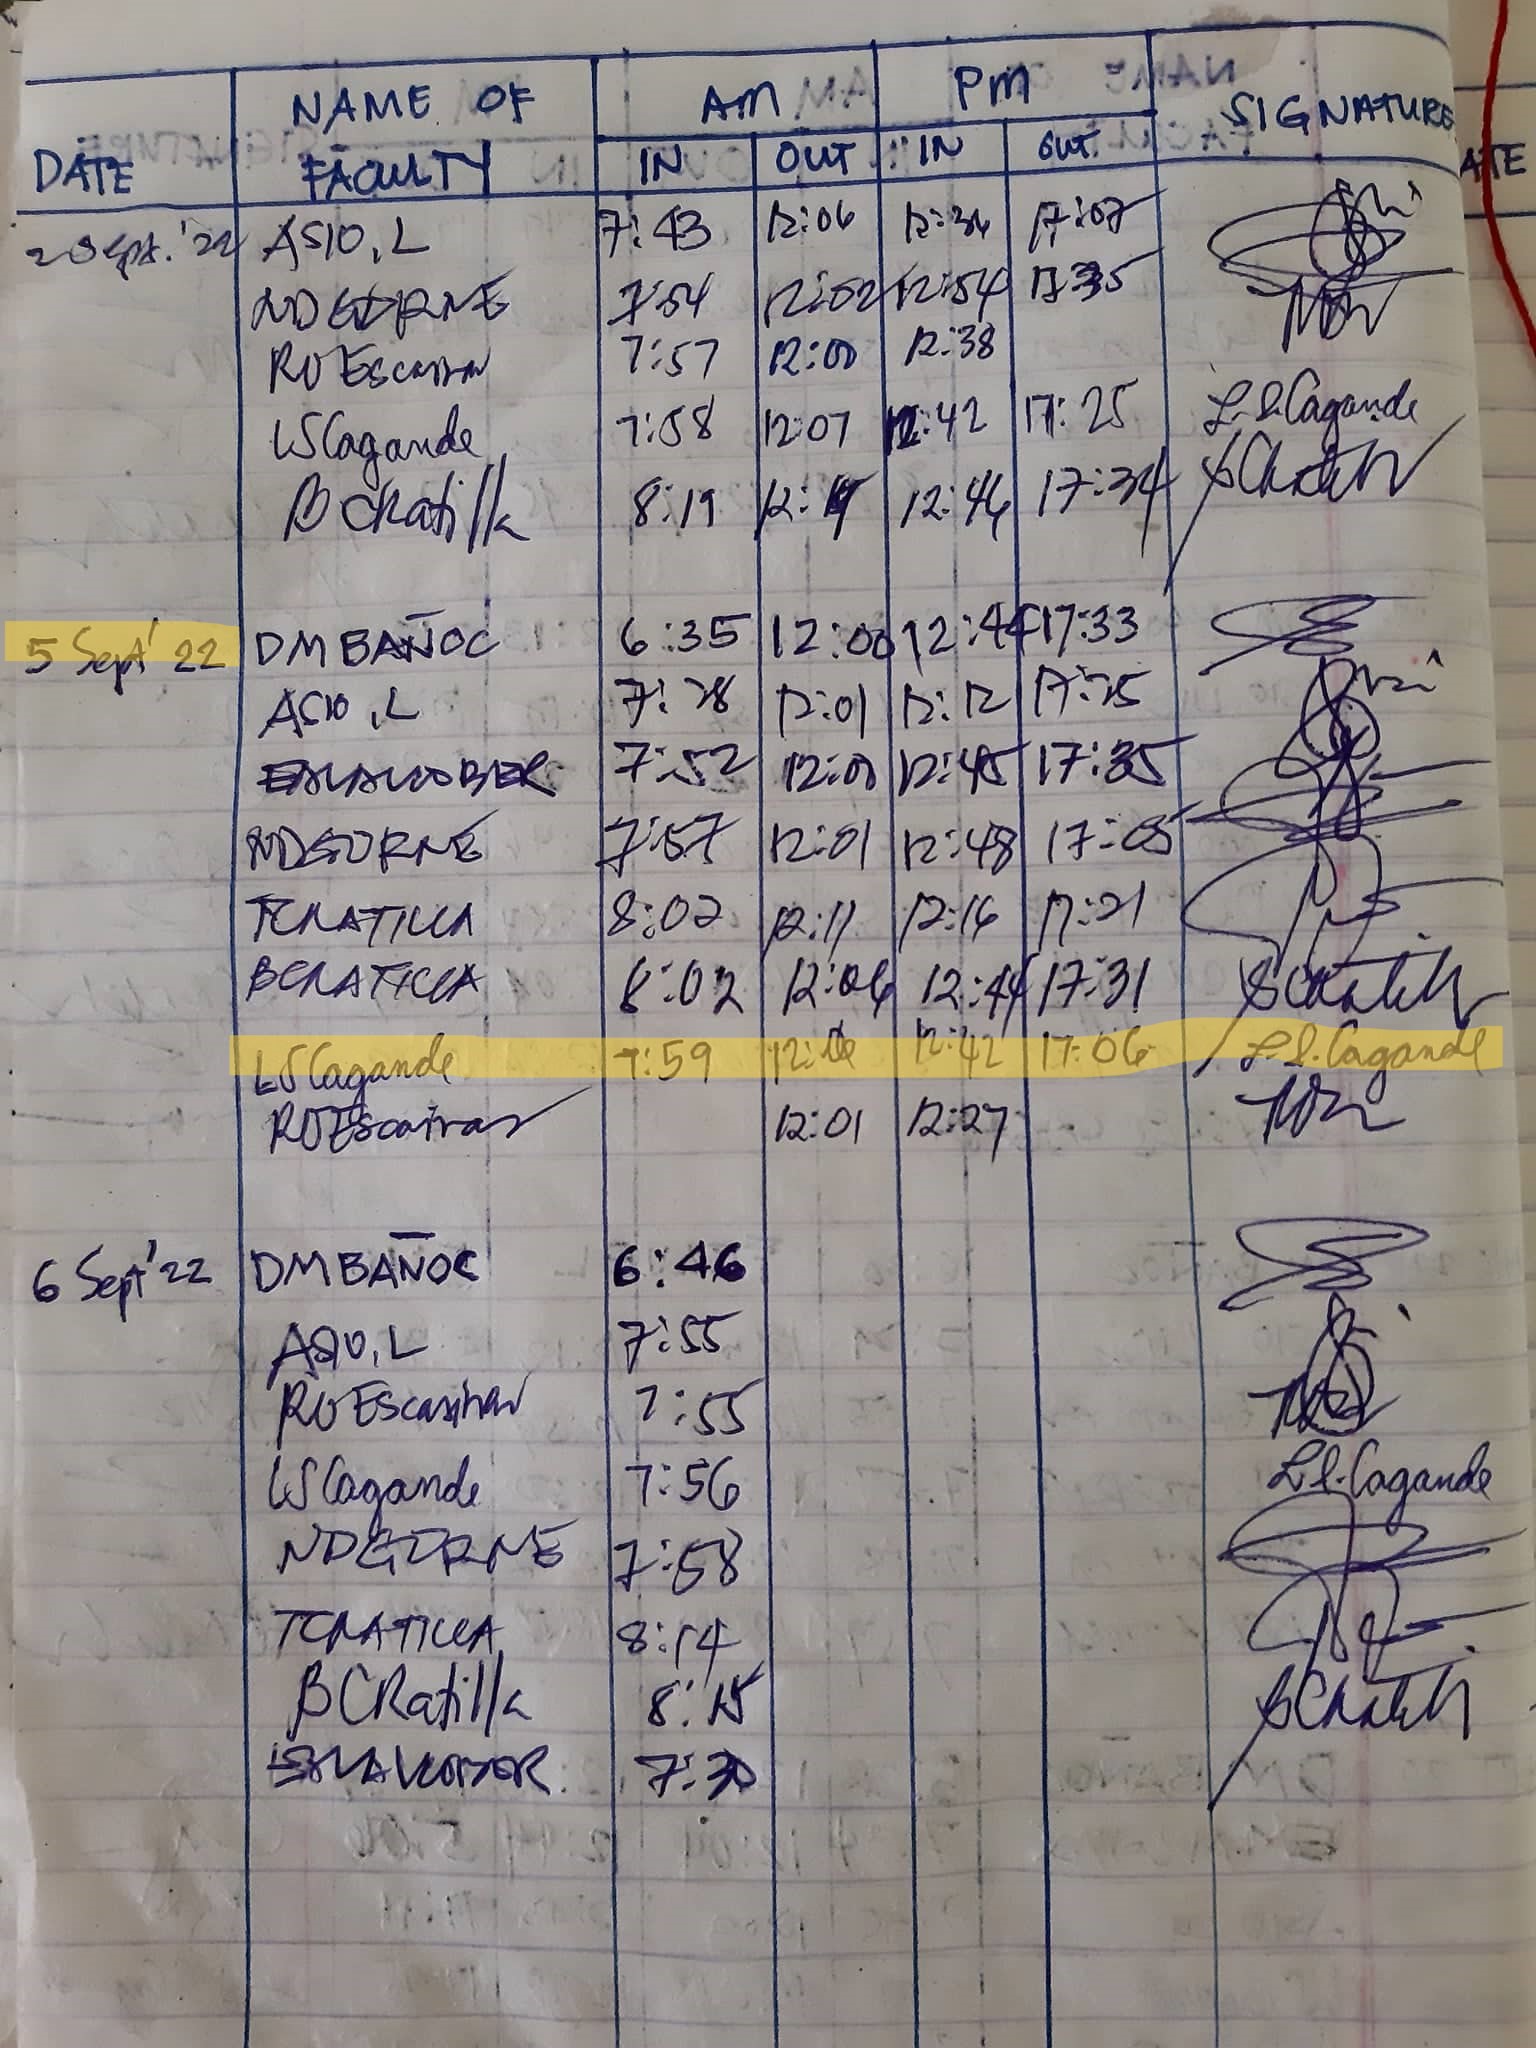 DATE NAME OF FACULTY AM PM SIGNATURE
IN OUT IN OUT
Sept. '22 ASIO, L 7:43 12:06 12:34 17:07
7:54 12:02 12:54 17:35
RO Escasinas 7:57 12:00 12:38
LSCagande 7:58 12:07 12:42 17:25 L.S.Cagande
BCRatilla 8:19 12:46 17:34 BCRatilla
5 Sept' 22 DMBAÑOC 6:35 12:00 12:44 17:33
ASIO, L 7:28 12:01 12:12 17:25
7:52 12:00 12:45 17:35
NDGORNE 7:57 12:01 12:48 17:05
TCRATILLA 8:02 12:11 12:16 17:21
BCRATILLA 8:02 12:06 12:44 17:31 BCRatilla
LSCagande 7:59 12:42 17:06 L.S.Cagande
RO Escasinas 12:01 12:27
6 Sept' 22 DMBAÑOC 6:46
ASIO, L 7:55
RO Escasinas 7:55
LSCagande 7:56 L.S.Cagande
NDGORNE 7:58
TCRATILLA 8:14
BCRatilla 8:15 BCRatilla
7:30